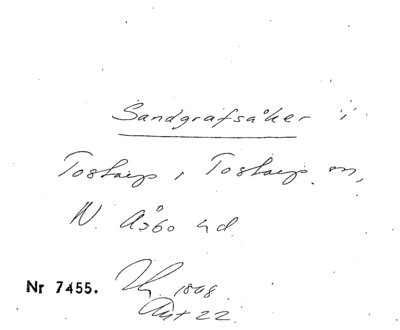 Sandgrafsåker i
Tostarp, Tostarp sn,
N. Åsbo hd
Nr 7455.
1808.
Akt 22